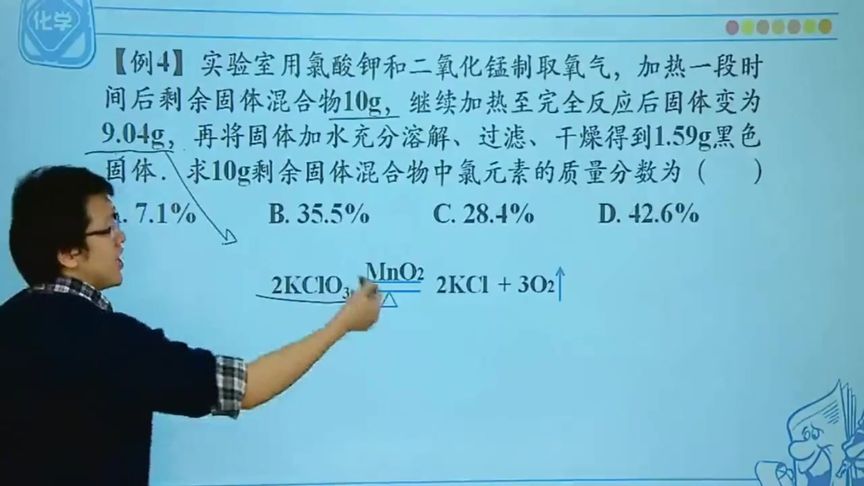 化学
【例4】实验室用氯酸钾和二氧化锰制取氧气，加热一段时
间后剩余固体混合物10g，继续加热至完全反应后固体变为
9.04g，再将固体加水充分溶解、过滤、干燥得到1.59g黑色
固体．求10g剩余固体混合物中氯元素的质量分数为（　　）
. 7.1%　B. 35.5%　C. 28.4%　D. 42.6%
2KClO3 MnO2 △ 2KCl + 3O2↑